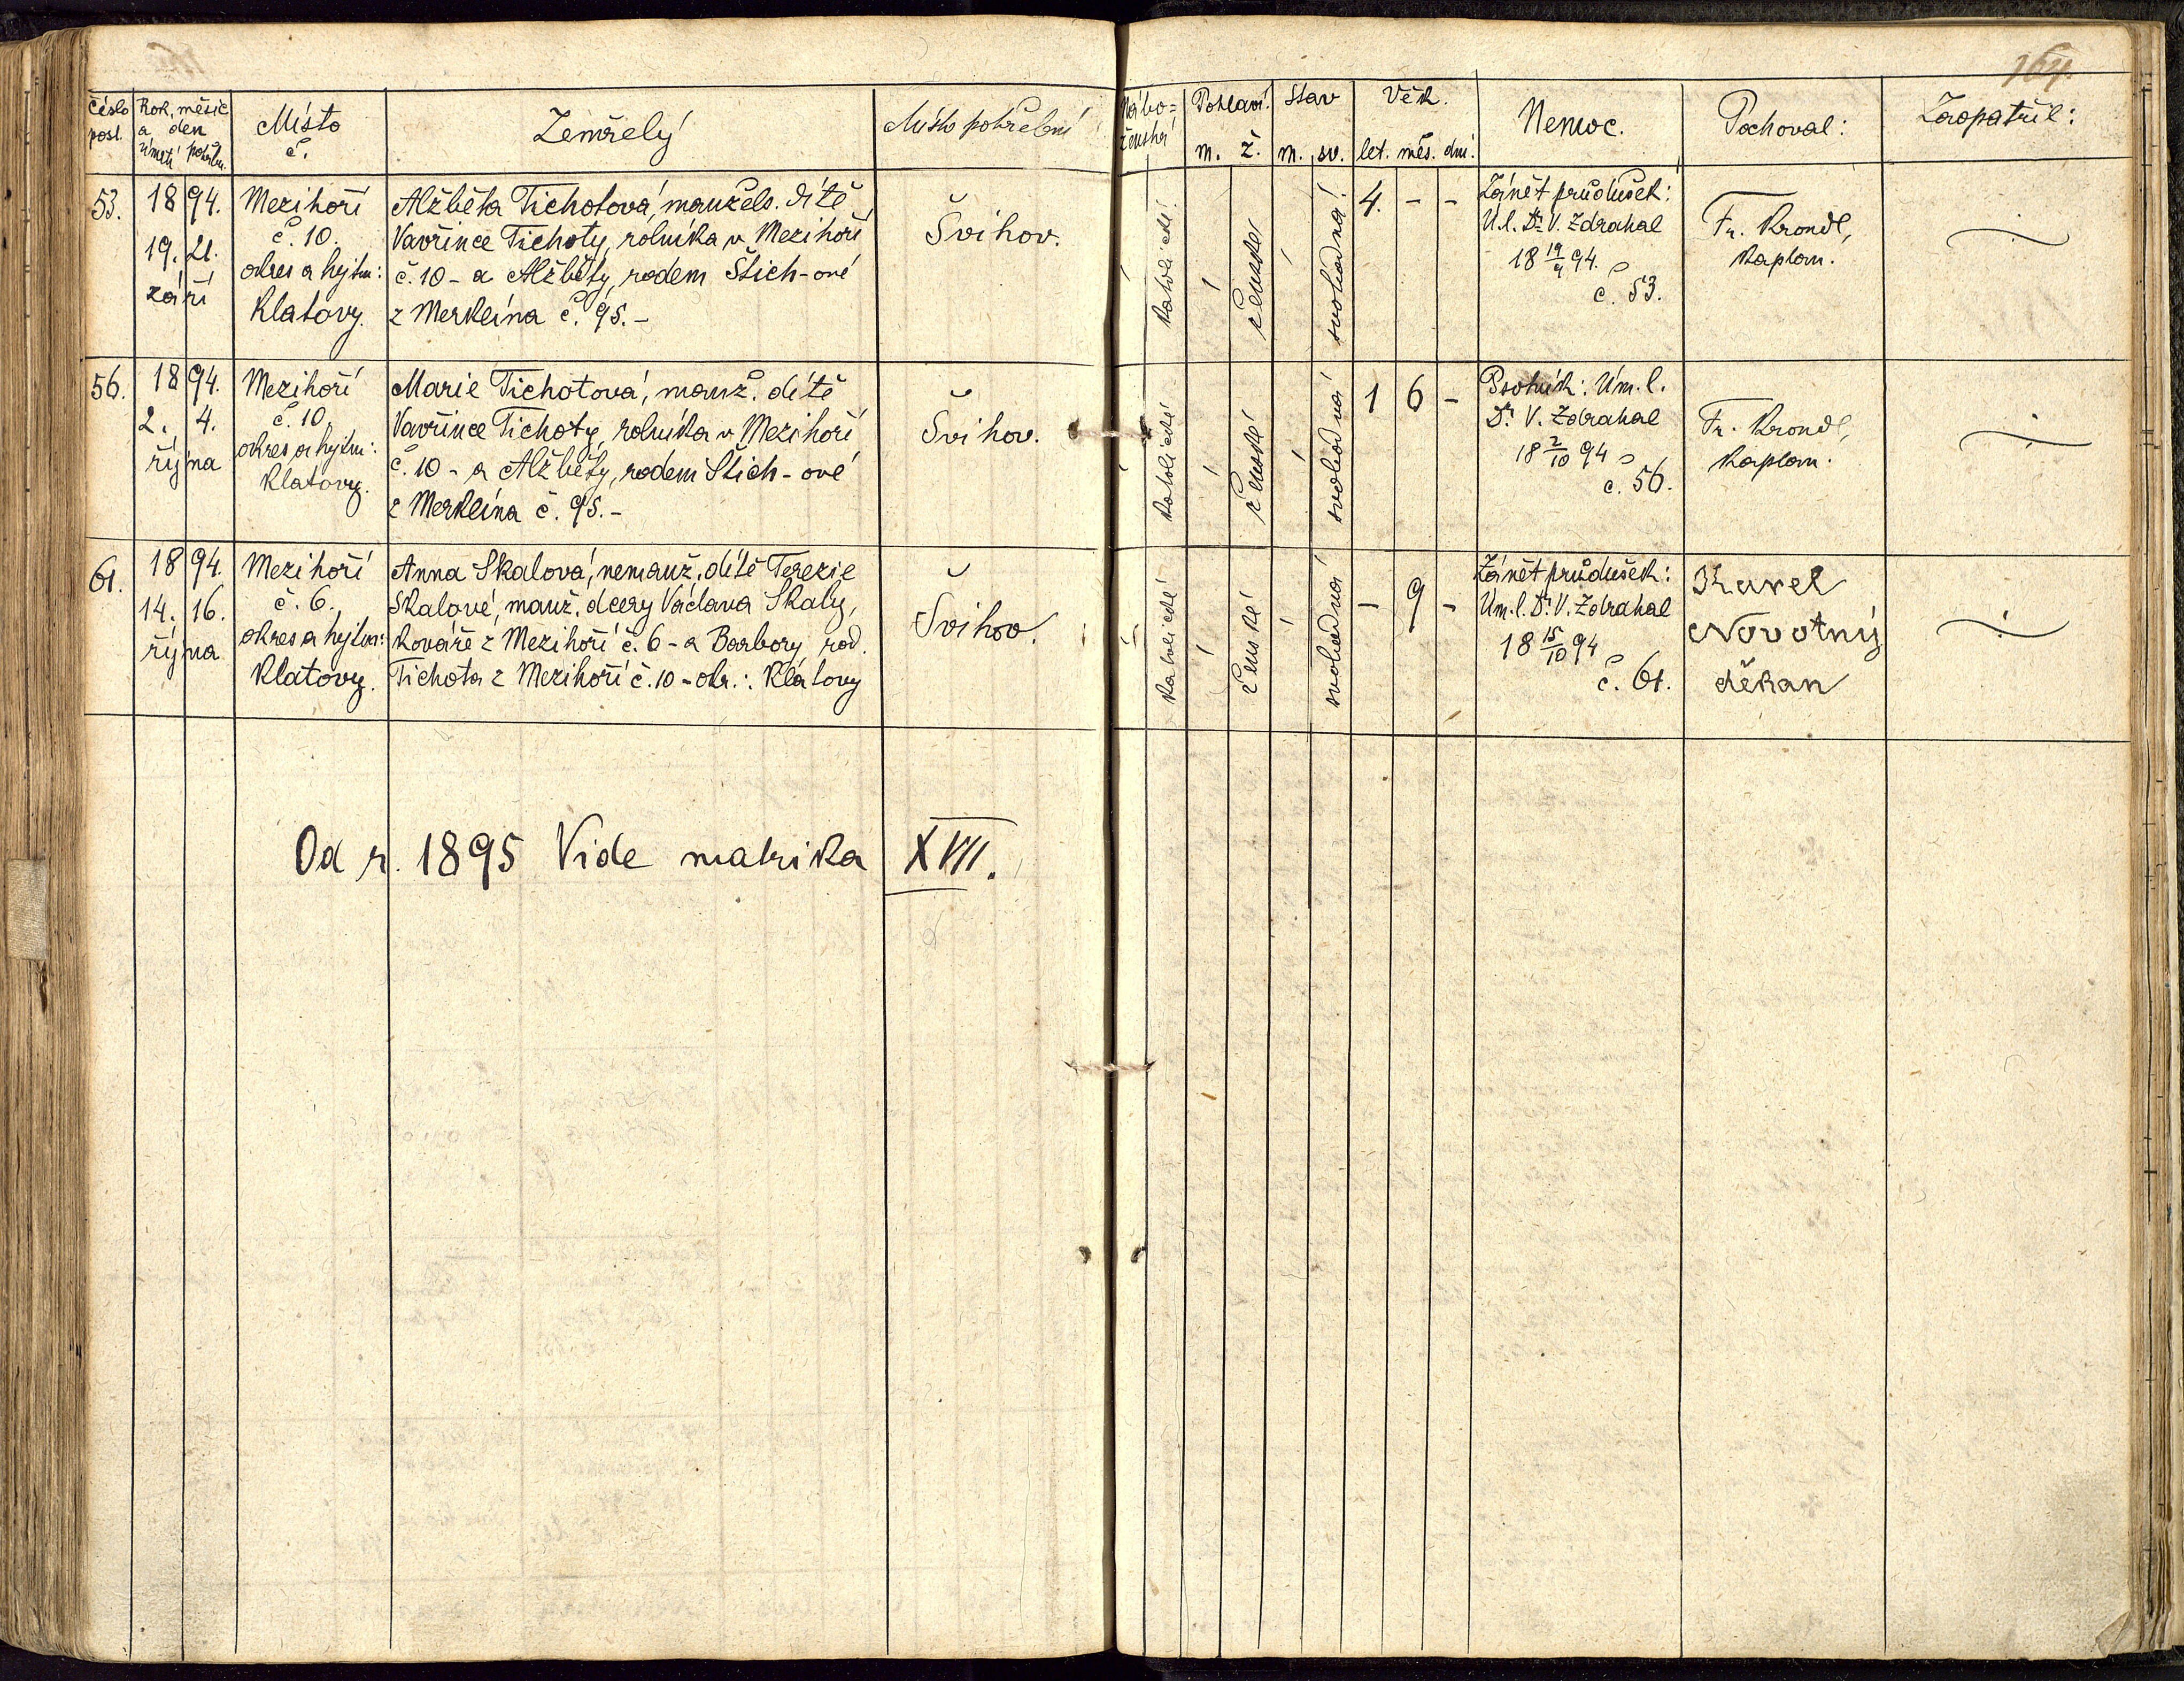 164.
Číslo posl.
Rok, měsíc
a den
úmrtí pohřbu.
Místo
č.
Zemřelý
Místo pohřební
Nábo=
ženství
Pohlaví.
m. ž.
Stav
m. sv.
Věk.
let. měs. dní.
Nemoc.
Pochoval:
Zaopatřil:
53.
18 94.
19. 21.
září
Mezihoří
č. 10.
okres a hejtm:
Klatovy.
Alžběta Tichotová, manžels. dítě
Vavřince Tichoty, rolníka v Mezihoří
č. 10 - a Alžběty, rodem Štich-ové
z Merklína č. 95. -
Švihov.
katolické
ženské
svobodná
4. - -
Zánět průdušek:
Ú.l. Dr. V. Zdrahal
18 19/9 94.
č. 53.
Fr. Krondl,
kaplan.
56.
18 94.
2. 4.
října
Mezihoří
č. 10.
okres a hejtm:
Klatovy.
Marie Tichotová, manž. dítě
Vavřince Tichoty, rolníka v Mezihoří
č. 10 - a Alžběty, rodem Štich-ové
z Merklína č. 95. -
Švihov.
katolické
ženské
svobodná
1 6 -
Psotník: Úm. l.
Dr. V. Zdrahal
18 2/10 94
č. 56.
Fr. Krondl,
kaplan.
61.
18 94.
14. 16.
října
Mezihoří
č. 6.
okres a hejtm:
Klatovy.
Anna Skalová, nemanž. dítě Terezie
Skalové, manž. dcery Václava Skaly,
kováře z Mezihoří č. 6 - a Barbory rod.
Tichota z Mezihoří č. 10 - okr.: Klatovy
Švihov.
katolické
ženské
svobodná
- 9 -
Zánět průdušek:
Úm. l. Dr. V. Zdrahal
18 15/10 94
č. 61.
Karel
Novotný
děkan
Od r. 1895 Vide matrika XVII.